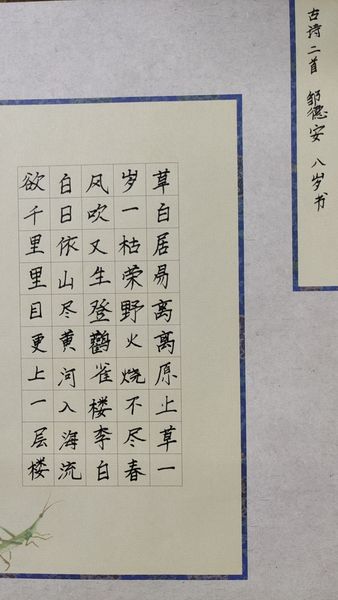 古诗二首 邹德安 八岁书
草白居易离离原上草一
岁一枯荣野火烧不尽春
风吹又生登鹳雀楼李白
白日依山尽黄河入海流
欲千里里目更上一层楼